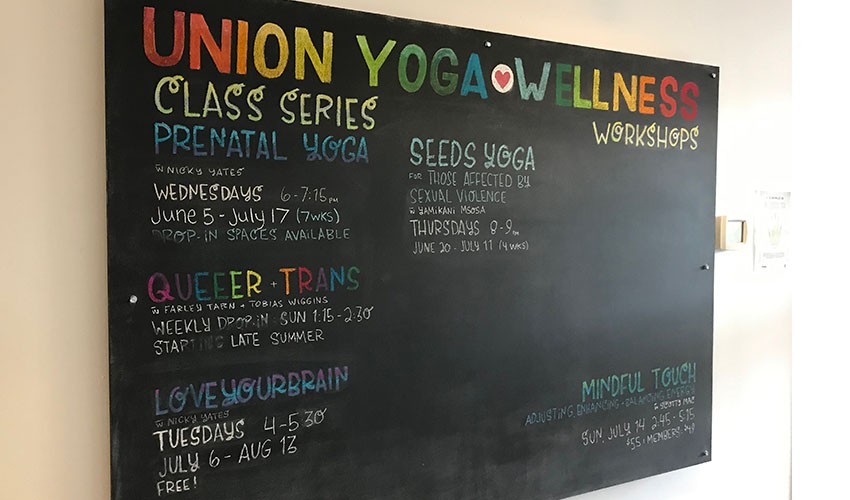 UNION YOGA ♥ WELLNESS
CLASS SERIES
PRENATAL YOGA
w NICKY YATES
WEDNESDAYS 6-7:15PM
June 5 - July 17 (7WKS)
DROP-IN SPACES AVAILABLE
QUEEER + TRANS
w FARLEY TARN + TOBIAS WIGGINS
WEEKLY DROP-IN SUN 1:15-2:30
STARTING LATE SUMMER
LOVEYOURBRAIN
w NICKY YATES
TUESDAYS 4-5:30
JULY 6 - AUG 13
FREE!
WORKSHOPS
SEEDS YOGA
FOR THOSE AFFECTED BY
SEXUAL VIOLENCE
w YAMIKANI MSOSA
THURSDAYS 8-9PM
JUNE 20 - JULY 11 (4WKS)
MINDFUL TOUCH
ADJUSTING, ENHANCING + BALANCING ENERGY
w SCOTTY MAC
SUN. JULY 14 2:45-5:15
$55 | MEMBERS